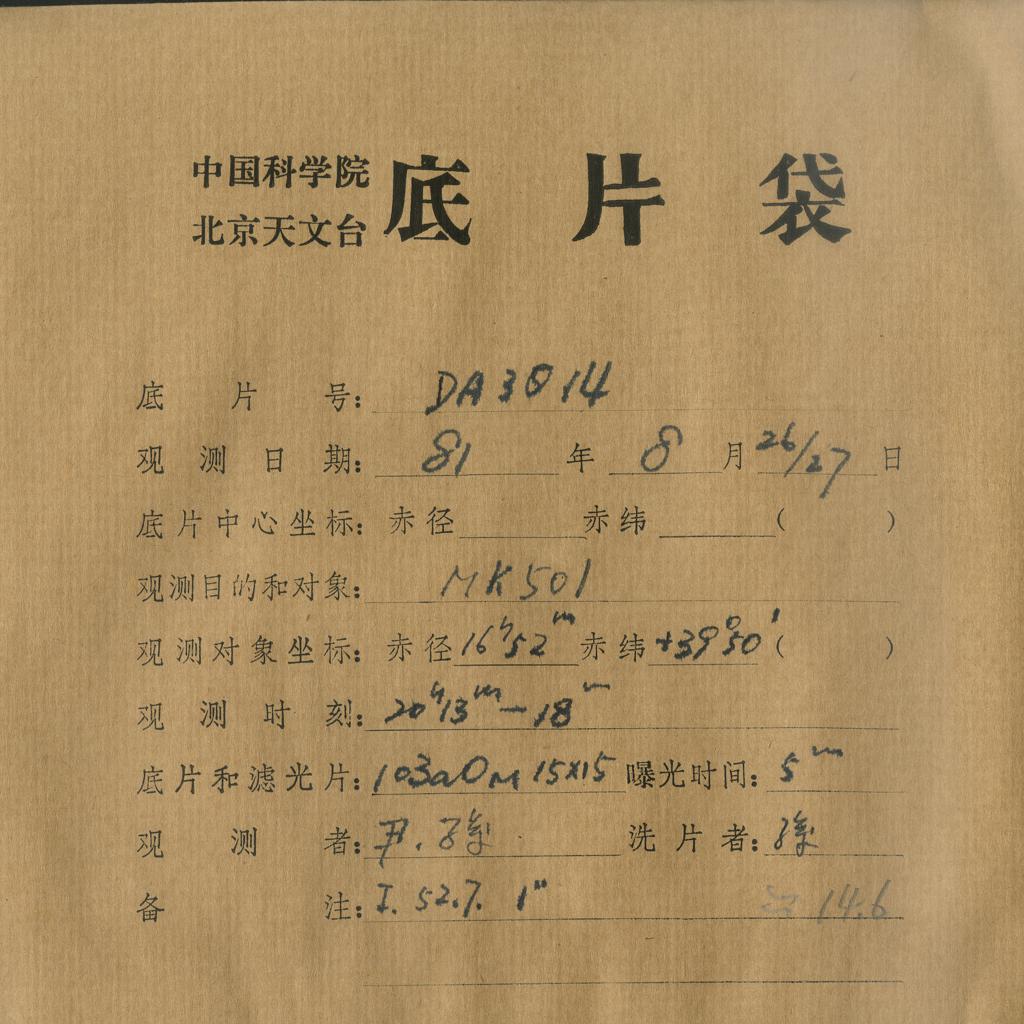 中国科学院
北京天文台 底片袋
底片号: DA3014
观测日期: 81 年 8 月 26/27 日
底片中心坐标: 赤径 赤纬 ( )
观测目的和对象: MK501
观测对象坐标: 赤径 16ʰ52ᵐ 赤纬 +39°50′ ( )
观测时刻: 20ʰ13ᵐ—18ᵐ
底片和滤光片: 103aO M 15x15 曝光时间: 5ᵐ
观测者: 尹. 孙 洗片者: 孙
备注: I. 52.7. 1" 14.6